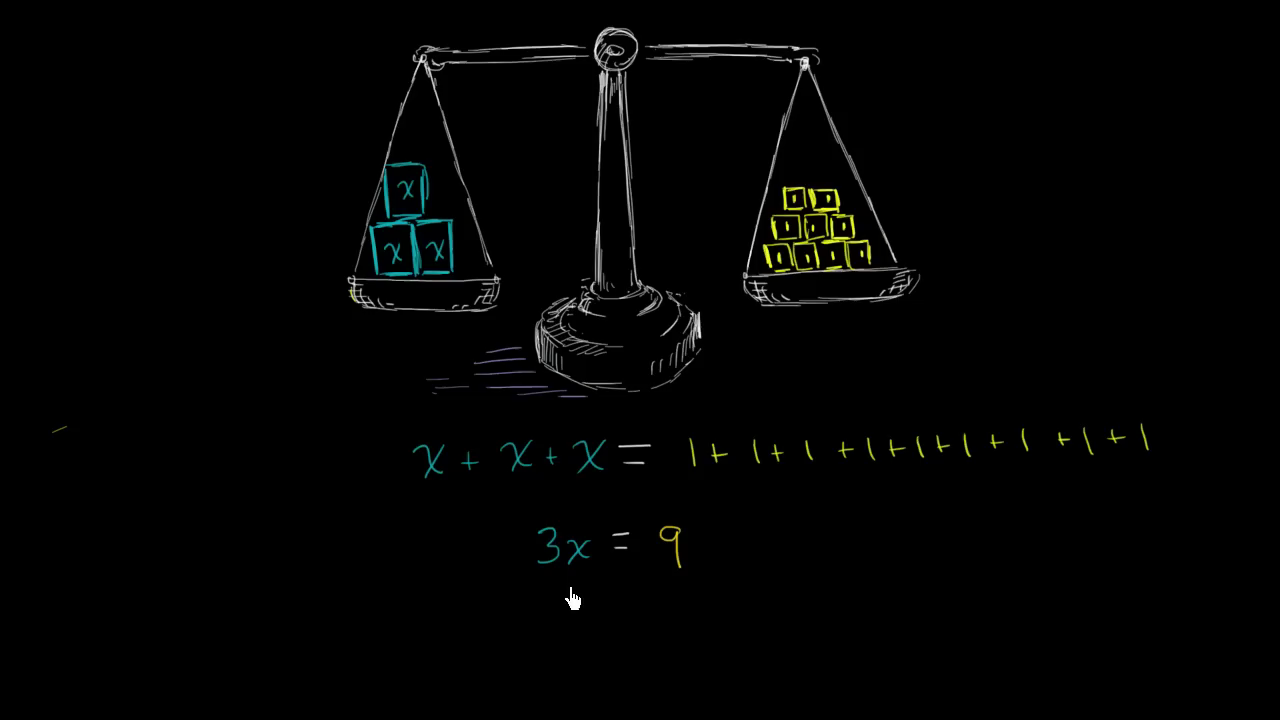 x
x x
1 1
1 1 1
1 1 1 1
x + x + x = 1 + 1 + 1 + 1 + 1 + 1 + 1 + 1 + 1
3x = 9